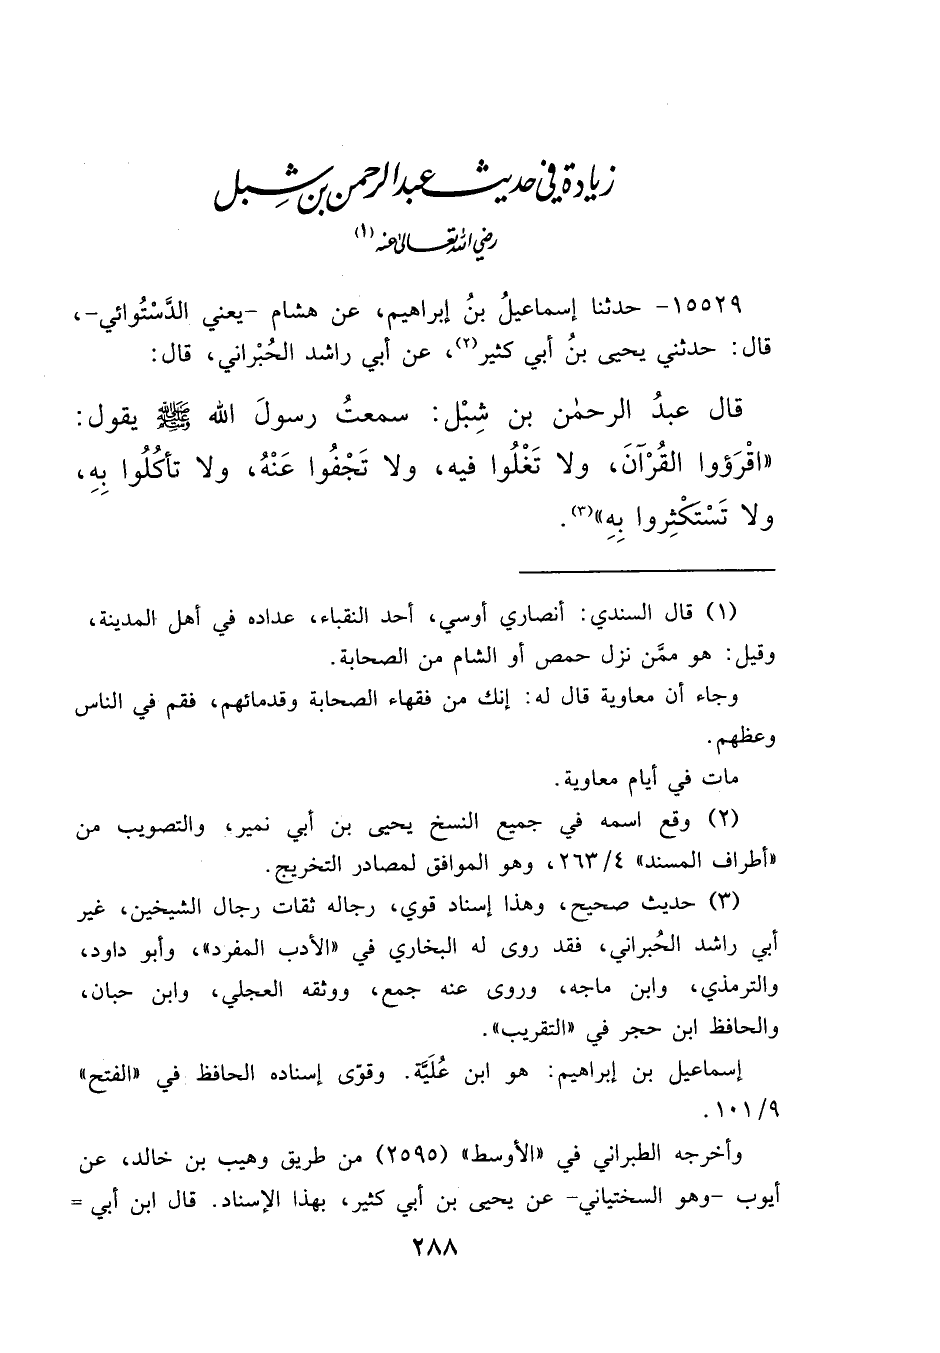 زيادة في حديث عبد الرحمن بن شبل
رضي الله تعالى عنه (١)
١٥٥٢٩- حدثنا إسماعيلُ بنُ إبراهيم، عن هشام -يعني الدَّسْتُوائي-،
قال: حدثني يحيى بنُ أبي كثير(٢)، عن أبي راشد الحُبْراني، قال:
قال عبدُ الرحمٰن بن شِبْل: سمعتُ رسولَ الله ﷺ يقول:
«اقْرَؤوا القُرْآنَ، ولا تَغْلُوا فيه، ولا تَجْفُوا عَنْهُ، ولا تأكُلُوا بِهِ،
ولا تَسْتَكْثِروا بِهِ»(٣).
(١) قال السندي: أنصاري أوسي، أحد النقباء، عداده في أهل المدينة،
وقيل: هو ممَّن نزل حمص أو الشام من الصحابة.
وجاء أن معاوية قال له: إنك من فقهاء الصحابة وقدمائهم، فقم في الناس
وعظهم.
مات في أيام معاوية.
(٢) وقع اسمه في جميع النسخ يحيى بن أبي نمير، والتصويب من
«أطراف المسند» ٢٦٣/٤، وهو الموافق لمصادر التخريج.
(٣) حديث صحيح، وهذا إسناد قوي، رجاله ثقات رجال الشيخين، غير
أبي راشد الحُبراني، فقد روى له البخاري في «الأدب المفرد»، وأبو داود،
والترمذي، وابن ماجه، وروى عنه جمع، ووثقه العجلي، وابن حبان،
والحافظ ابن حجر في «التقريب».
إسماعيل بن إبراهيم: هو ابن عُلَيَّة. وقوّى إسناده الحافظ في «الفتح»
١٠١/٩.
وأخرجه الطبراني في «الأوسط» (٢٥٩٥) من طريق وهيب بن خالد، عن
أيوب -وهو السختياني- عن يحيى بن أبي كثير، بهذا الإسناد. قال ابن أبي =
٢٨٨